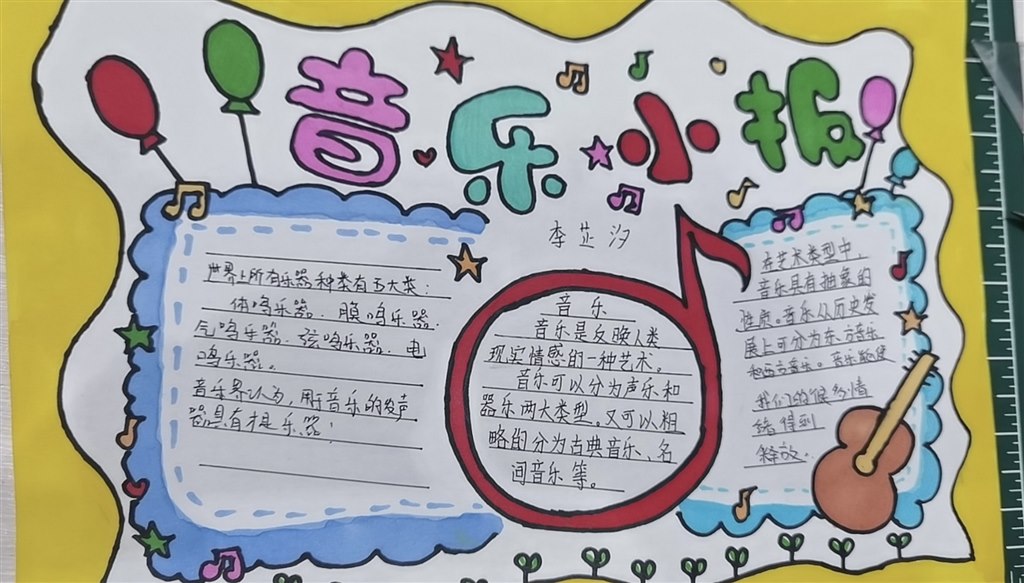 音乐小报
李芷汐
世界上所有乐器种类有五大类：
体鸣乐器、膜鸣乐器、
气鸣乐器、弦鸣乐器、电
鸣乐器。
音乐界认为，用于音乐的发声
器具有才是乐器！
音乐
音乐是反映人类
现实情感的一种艺术。
音乐可以分为声乐和
器乐两大类型。又可以粗
略的分为古典音乐、名
间音乐等。
在艺术类型中，
音乐具有抽象的
性质。音乐从历史发
展上可分为东方音乐
和西方音乐。音乐能使
我们的很多情
绪得到
释放。